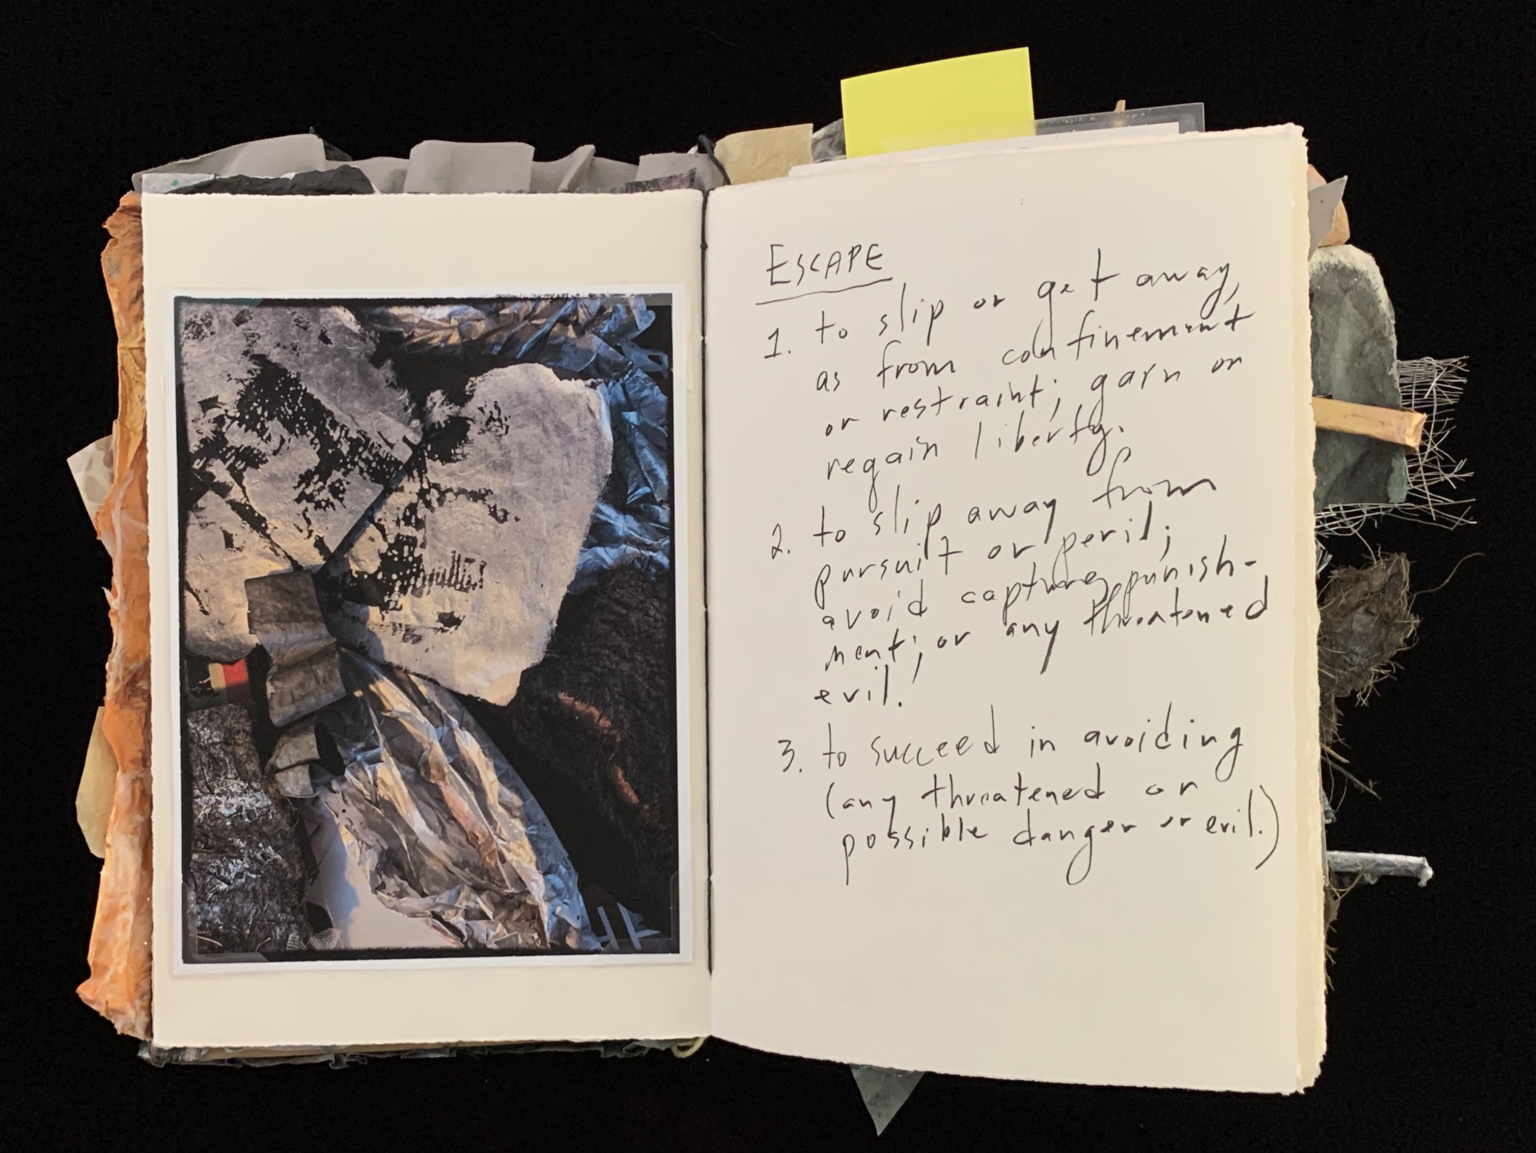 ESCAPE
1. to slip or get away,
as from confinement
or restraint; gain or
regain liberty.
2. to slip away from
pursuit or peril;
avoid capture, punish-
ment; or any threatened
evil.
3. to succeed in avoiding
(any threatened or
possible danger or evil.)